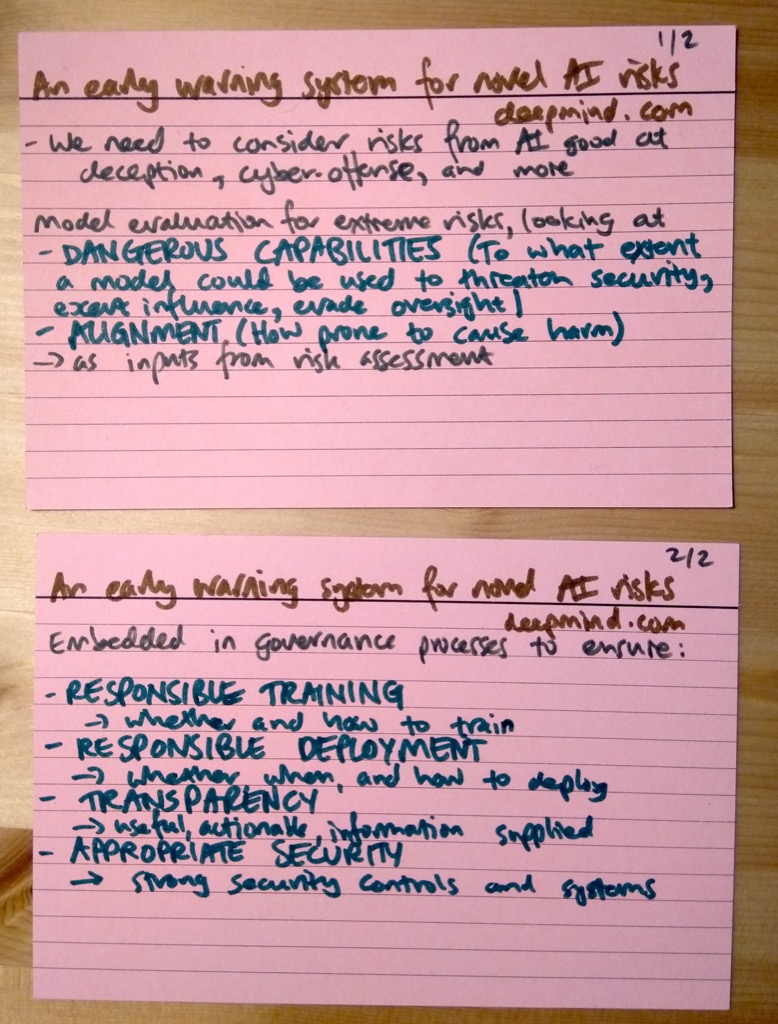 1/2
An early warning system for novel AI risks
deepmind.com
- We need to consider risks from AI good at
deception, cyber-offense, and more
Model evaluation for extreme risks, looking at
- DANGEROUS CAPABILITIES (To what extent
a model could be used to threaton security,
exert influence, evade oversight)
- ALIGNMENT (How prone to cause harm)
→ as inputs from risk assessment
2/2
An early warning system for novel AI risks
deepmind.com
Embedded in governance processes to ensure:
- RESPONSIBLE TRAINING
→ whether and how to train
- RESPONSIBLE DEPLOYMENT
→ whether, when, and how to deploy
- TRANSPARENCY
→ useful, actionable, information supplied
- APPROPRIATE SECURITY
→ strong security controls and systems